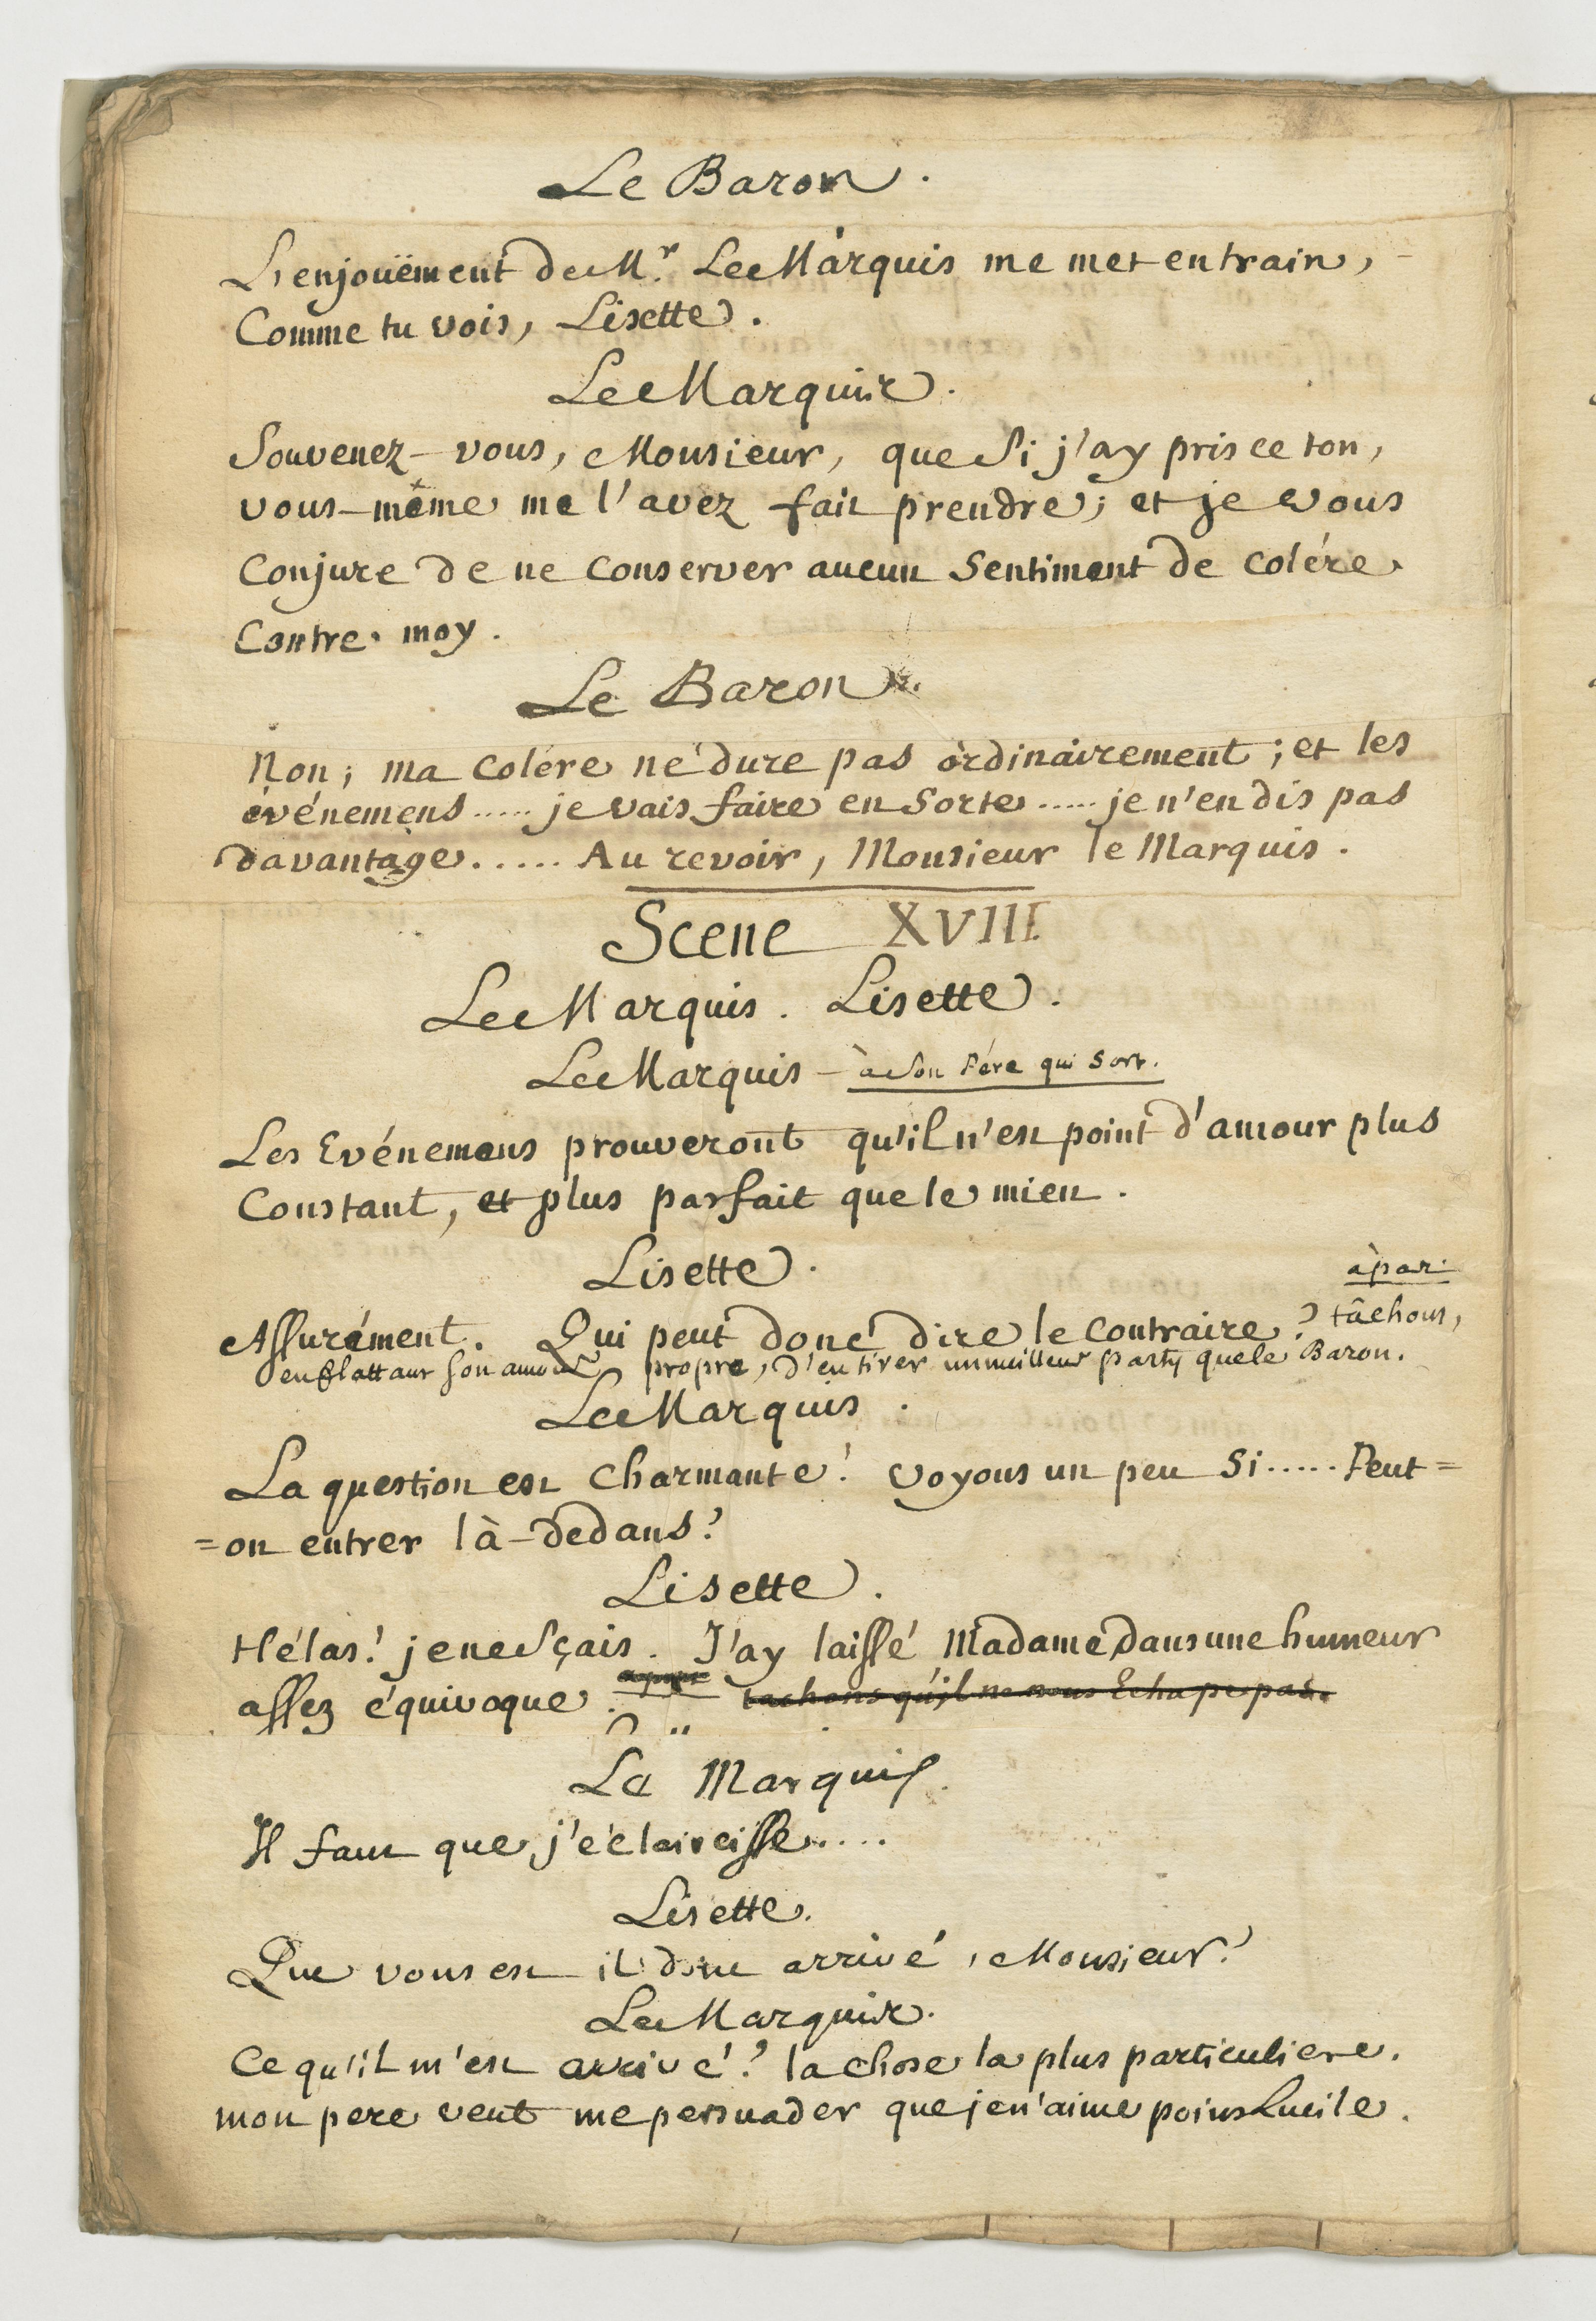 Le Baron.
L'enjoüement de Mr. Le Marquis me met en train,
Comme tu vois, Lisette.
Le Marquis.
Souvenez-vous, Monsieur, que si j'ay pris ce ton,
vous-même me l'avez fait prendre; et je vous
Conjure de ne Conserver aucun Sentiment de Colére
Contre moy.
Le Baron.
Non; ma Colére ne dure pas ordinairement; et les
événemens ..... je vais faire en Sorte ..... je n'en dis pas
davantage ..... Au revoir, Monsieur le Marquis.
Scene XVIII.
Le Marquis. Lisette.
Le Marquis – à son Pére qui Sort.
Les Evénemens prouveront qu'il n'est point d'amour plus
Constant, et plus parfait que le mien.
Lisette.
à par.
Assurément. Qui peut donc dire le Contraire? tâchons,
en flattant son amour propre, d'en tirer un meilleur party que le Baron.
Le Marquis.
La question est Charmante! voyons un peu Si ..... Peut=
=on entrer là-dedans?
Lisette.
Hélas! je ne sçais. J'ay laissé Madame dans une humeur
assez équivoque. apar tachons qu'il ne nous Echape pas.
Le Marquis.
Il faut que j'éclaircisse.....
Lisette.
Que vous est il donc arrivé, Monsieur?
Le Marquis.
Ce qu'il m'est arrivé? la chose la plus particuliere.
mon pere veut me persuader que je n'aime point Lucile.